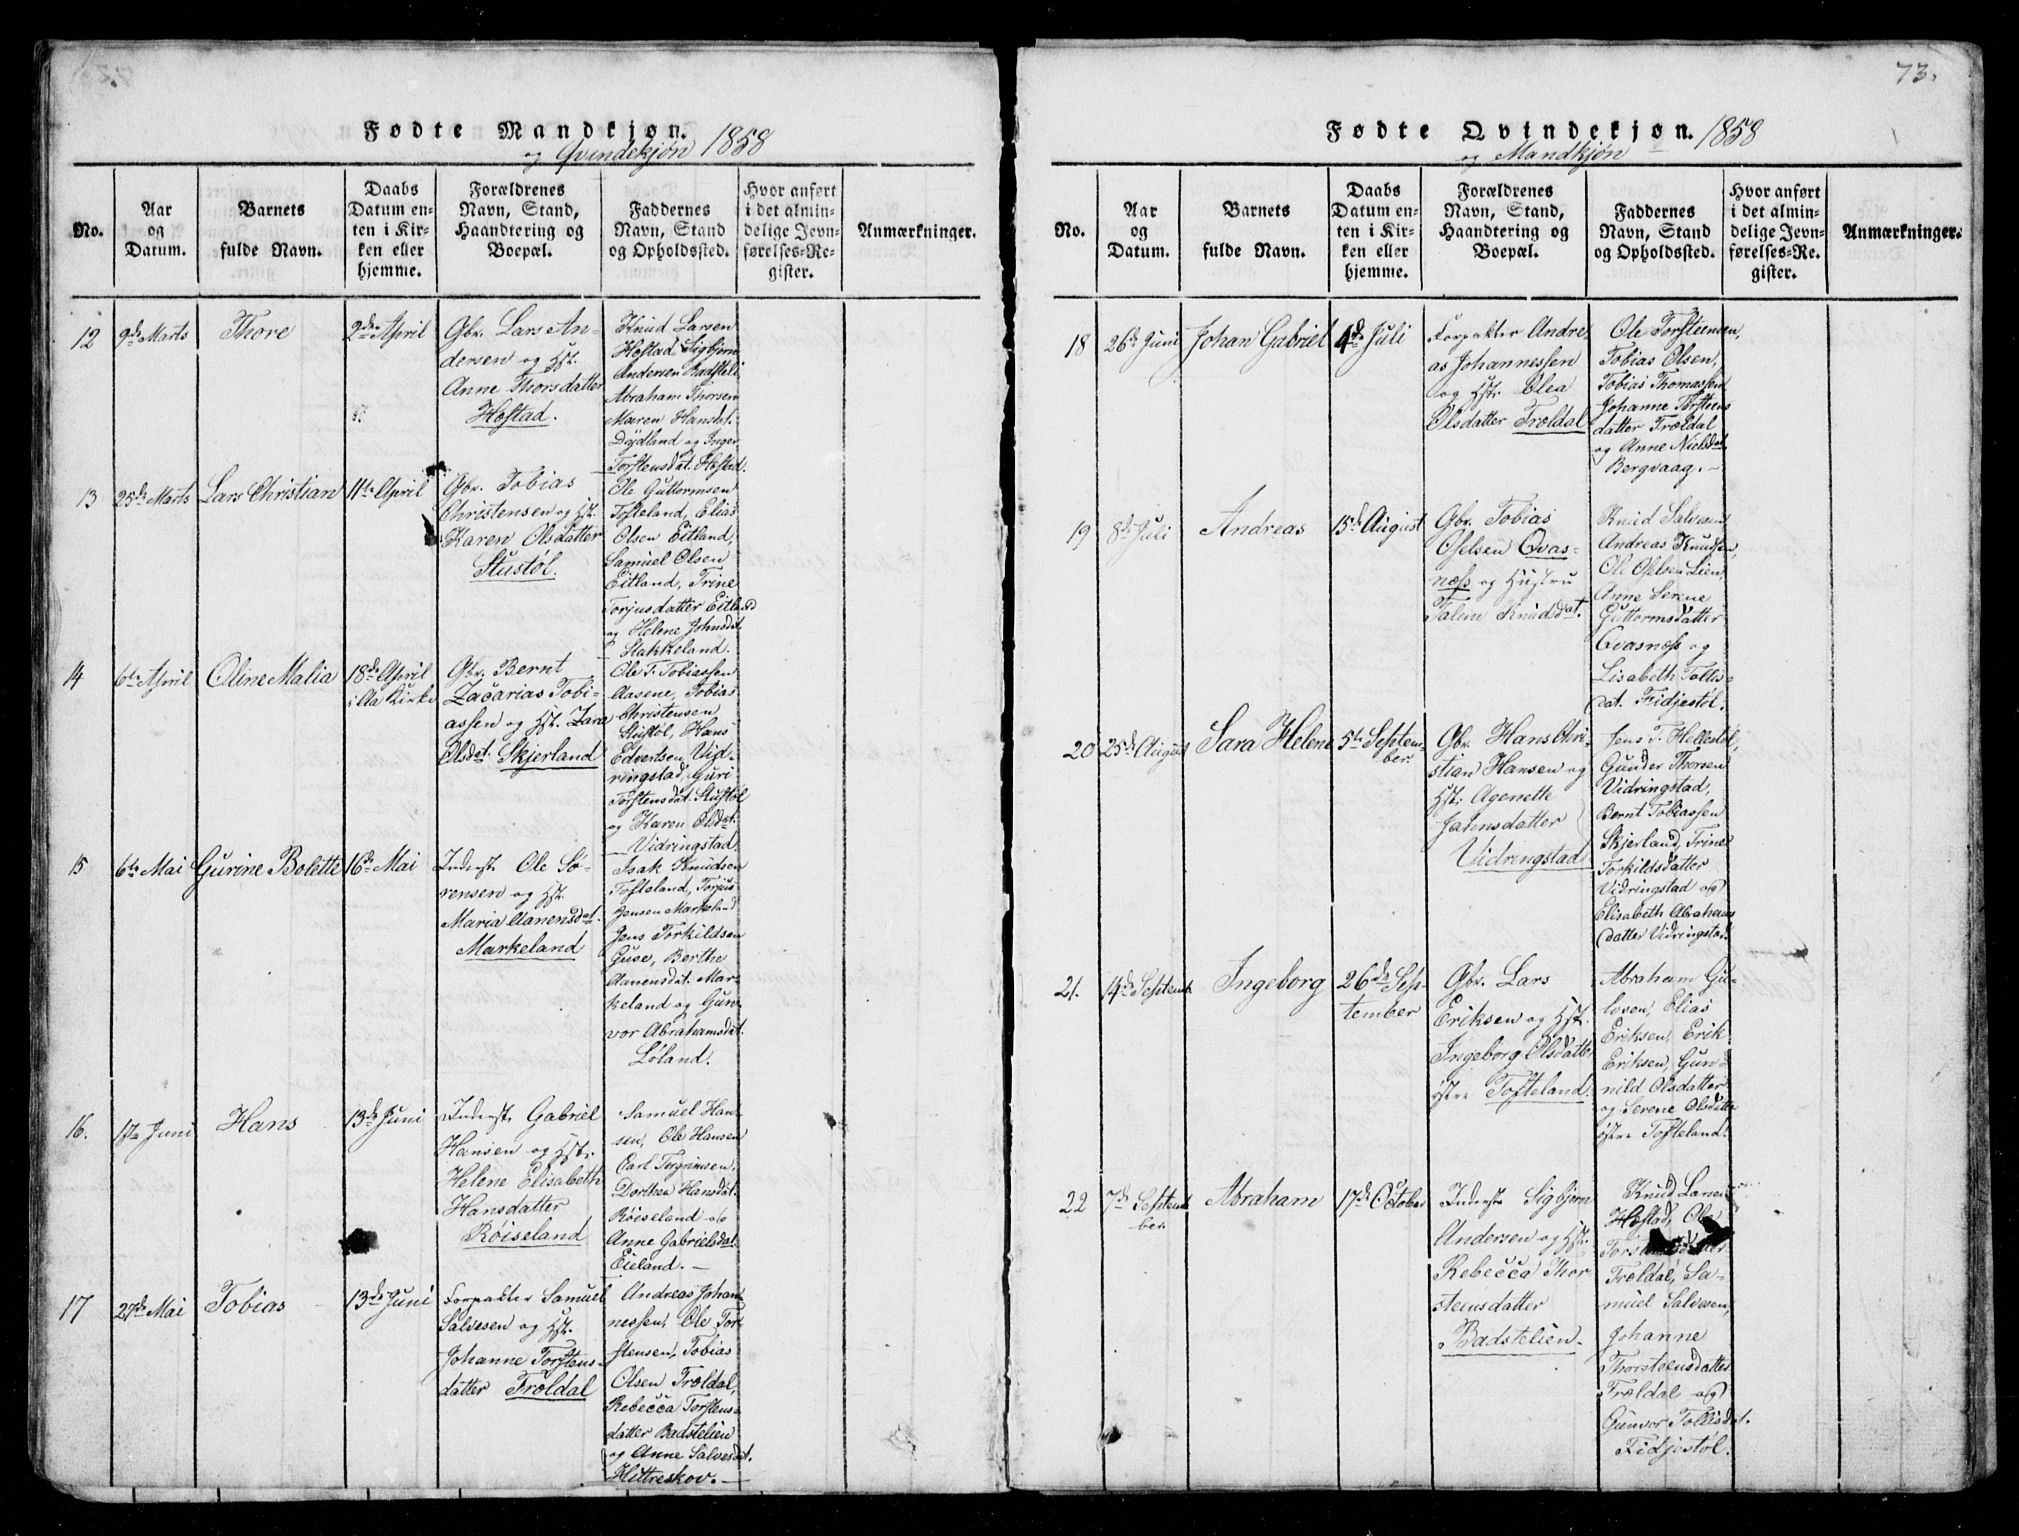 Fødte Mandkjøn. 1858
og Qvindekjøn
No.
Aar
og
Datum.
Barnets
fulde Navn.
Daabs
Datum en-
ten i Kir-
ken eller
hjemme.
Forældrenes
Navn, Stand,
Haandtering og
Boepæl.
Faddernes
Navn, Stand
og Opholdssted.
Hvor anført
i det almin-
delige Jevn-
førelses-Re-
gister.
Anmærkninger.
12
9de Marts
Thore
2den April
Gbr. Lars An-
dersen og Hst.
Anne Thorsdatter
Høstad.
Knud Larsen
Høstad, Sigbjørn
Andersen Badsteli
Abraham Thorsen
Maren Hansdt.
Dydland og Inger
Torstensdat. Høstad.
13
25de Marts
Lars Christian
11te April
Gbr. Tobias
Christensen og Hst.
Karen Olsdatter
Stustøl.
Ole Guttormsen
Tofteland, Elias
Olsen Eitland,
Samuel Olsen
Eitland, Trine
Torjusdatter Eitland
og Helene Johnsdat.
Stakkeland.
14
6te April
Oline Malia
18de April
i Aa Kirke
Gbr. Bernt
Zacarias Tobi-
assen og Hst. Zara
Olsdat. Skjerland
Ole T. Tobiassen
Aasene, Tobias
Christensen
Stustøl, Hans
Edvertsen Vid-
ringstad, Guri
Torstensdat. Stustøl
og Karen Olsdat.
Vidringstad.
15
6te Mai
Gurine Bolette
16de Mai
Inderst Ole Sø-
rensen og Hst.
Maria Aanensdat.
Markeland
Isak Knudsen
Tofteland, Torjus
Jensen Markeland
Jens Torkildsen
Guse, Berthe
Aanensdat. Mar-
keland og Gun-
vor Abrahamsdat.
Løland.
16.
1ste Juni
Hans
13de Juni
Inderst Gabriel
Hansen og Hst.
Helene Elisabeth
Hansdatter
Røiseland
Samuel Han-
sen, Ole Hansen
Carl Tergrimsen,
Dorthea Hansdat.
Røiseland og
Anne Gabrielsdat.
Eieland.
17
27de Mai
Tobias
13de Juni
Forpakter Samuel
Salvesen og Hst.
Johanne Torstens-
datter Trældal
Andreas Johan-
nessen, Ole Tor-
stensen, Tobias
Olsen Trældal,
Rebecca Torstens-
datter Badstelien
og Anne Salvesdat.
Hittreskov.
73.
Fødte Qvindekjøn. 1858
og Mandkjøn
No.
Aar
og
Datum.
Barnets
fulde Navn.
Daabs
Datum en-
ten i Kir-
ken eller
hjemme.
Forældrenes
Navn, Stand,
Haandtering og
Boepæl.
Faddernes
Navn, Stand
og Opholdssted.
Hvor anført
i det almin-
delige Jevn-
førelses-Re-
gister.
Anmærkninger.
18
26de Juni
Johan Gabriel
4de Juli
Forpakter Andre-
as Johannessen
og Hst. Olea
Olsdatter Trældal
Ole Torsteensen,
Tobias Olsen,
Tobias Thomassen
Johanne Torsteens
datter Trældal
og Anne Nielsdat.
Bergvaag.
19
8de Juli
Andreas
15de August
Gbr. Tobias
Oselsen Qvas-
næss og Hustru
Talene Knudsdat.
Knud Salvesen
Andreas Knudsen,
Ole Oselsen Lien,
Anne Serene
Guttormsdatter
Qvasnæss og
Lisabeth Tollis-
dat. Fidjestøl.
20
25de August
Sara Helene
5te Septem-
ber.
Gbr. Hans Chri-
stian Hansen og
Hst. Agenette
Jahnsdatter
Vidringstad
Jens T. Hellestøl,
Gunder Thorsen
Vidringstad,
Bernt Tobiassen
Skjerland, Trine
Torkildsdatter
Vidringstad og
Elisabeth Abrahams
datter Vidringstad.
21.
14de Septemb.
Ingeborg
26de Sep-
tember
Gbr. Lars
Eriksen og Hst.
Ingeborg Olsdatter
østre Tofteland.
Abraham Gu-
lvsen, Elias
Eriksen, Erik
Eriksen, Gun-
nild Olsdatter
og Serene Olsdatter
østre Tofteland.
22
7de Septem-
ber.
Abraham
17de October
Inderst Sigbjørn
Andersen og Hst.
Rebecca Thor-
steensdatter
Badstelien
Knud Larsen
Høstad, Ole
Trældal, Sa-
muel Salvesen,
Johanne
Thorsteensdatter
Trældal og
Gunvor Tollisdat.
Fidjestøl.